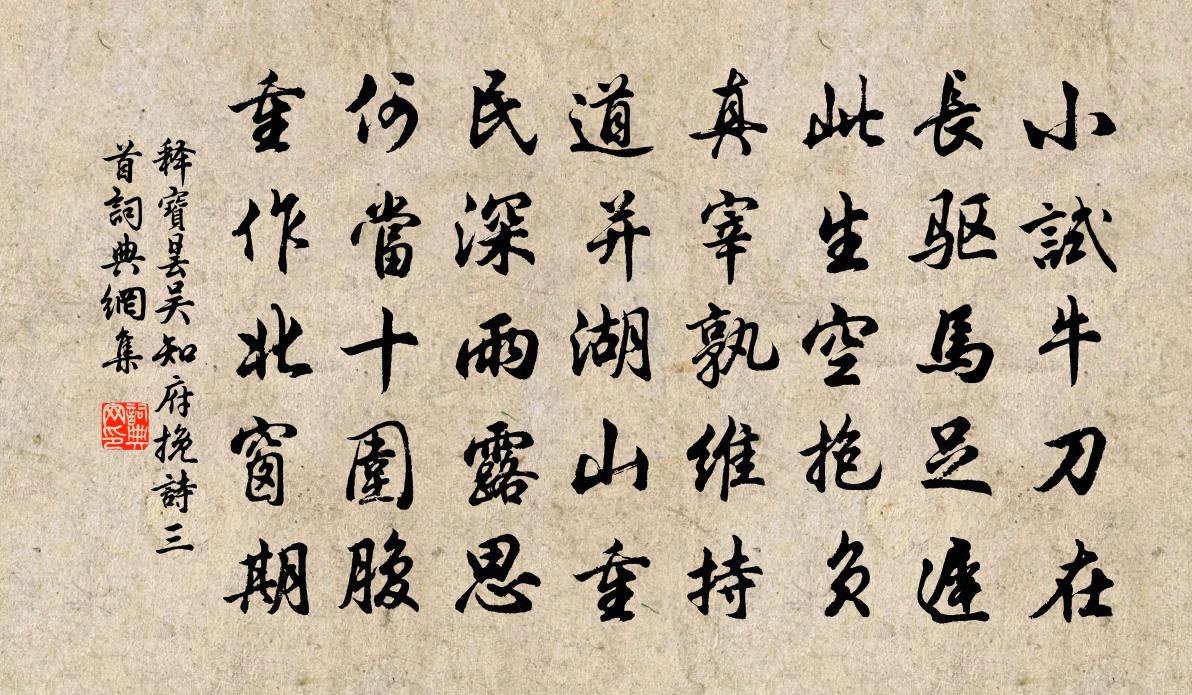 小試牛刀在
長驱馬足遲
此生空抱負
真宰孰維持
道并湖山重
民深雨露思
何當十圍腹
重作北窗期
释寶曇吴知府挽詩三
首詞典網集
詞典
网印